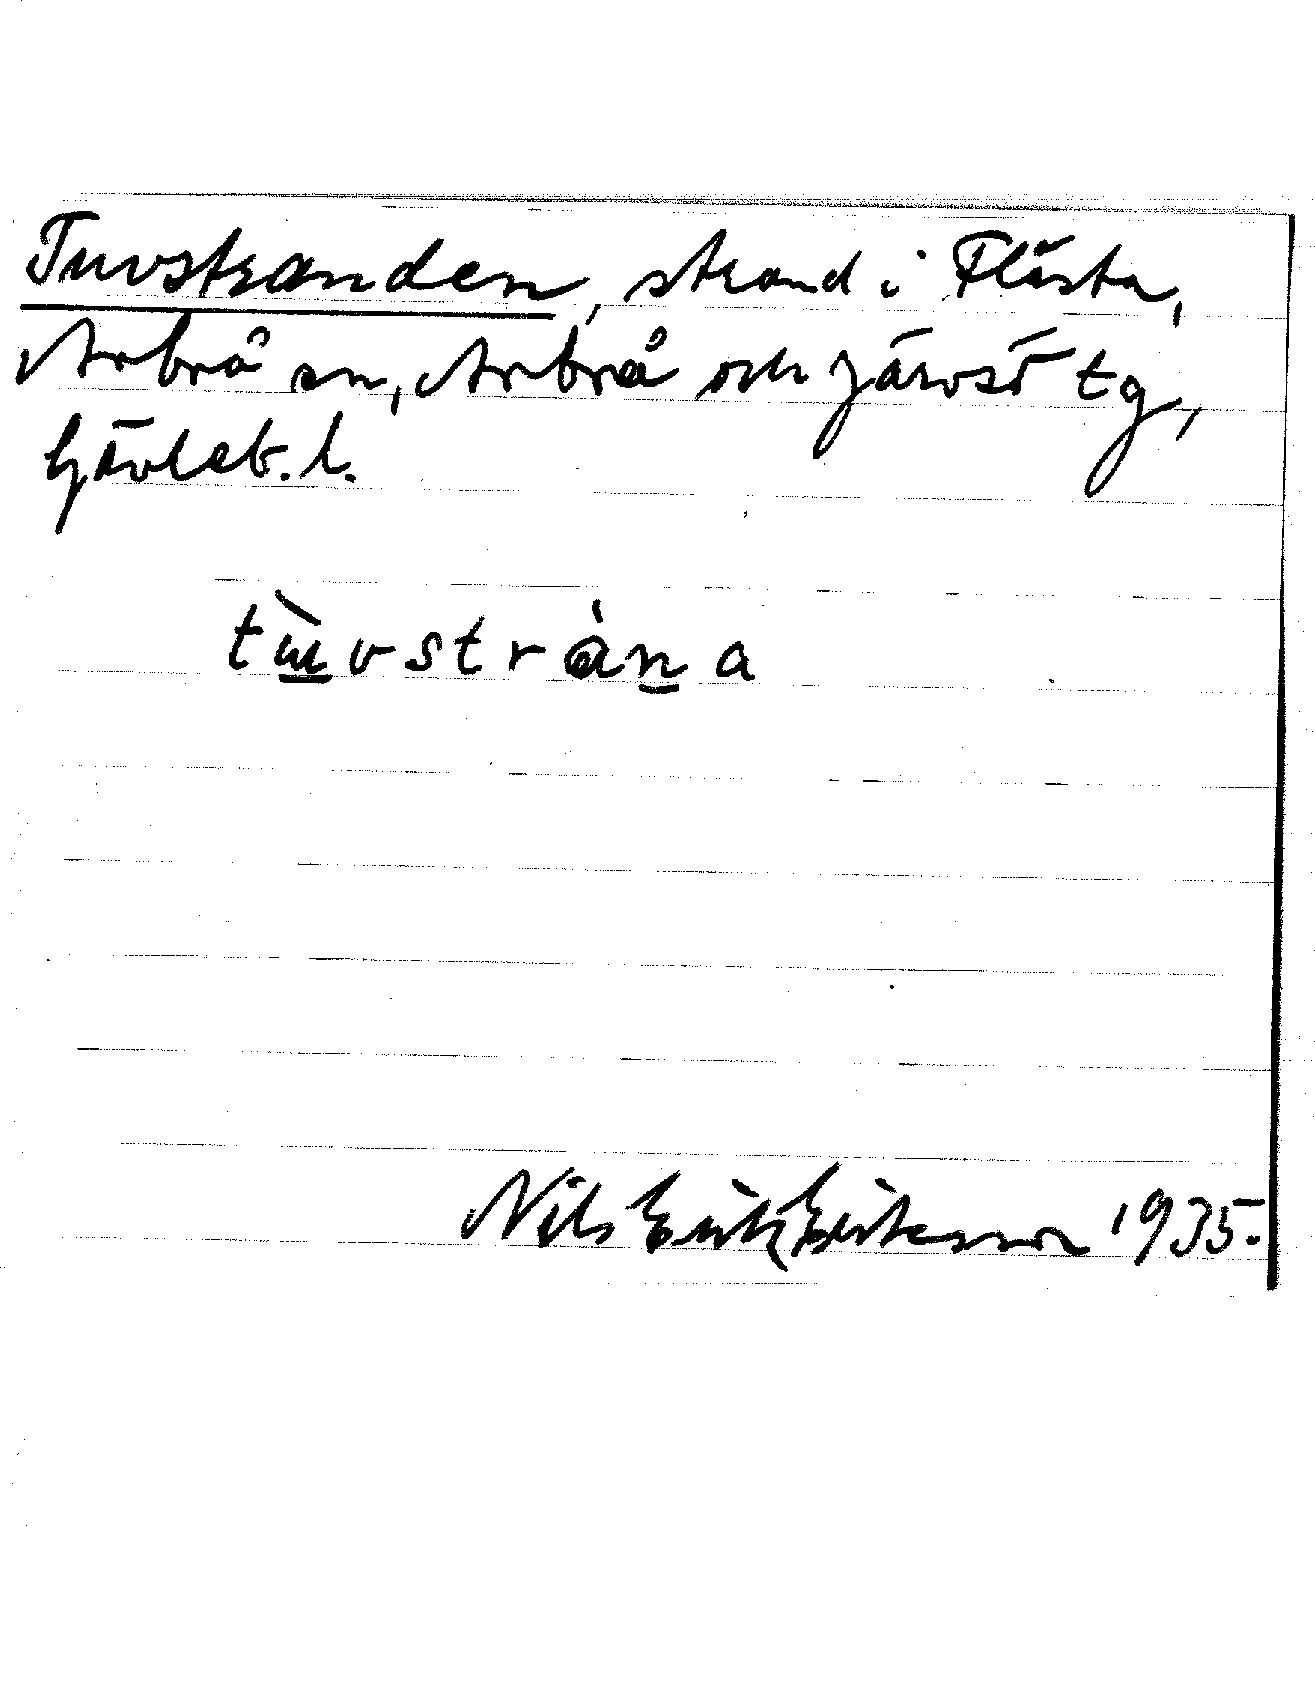 Tuvstranden, strand i Flästa,
Arbrå sn, Arbrå och Järvsö tg,
Gävleb. l.
tùvstràna
Nils Erik Eriksson 1935.